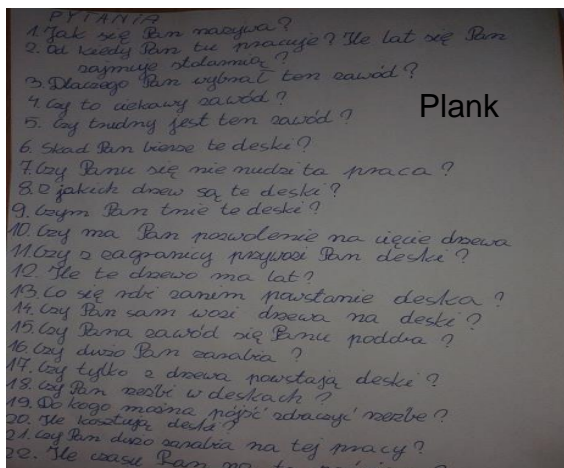 PYTANIA
1. Jak się Pan nazywa?
2. Od kiedy Pan tu pracuje? Ile lat się Pan
zajmuje stolarnią?
3. Dlaczego Pan wybrał ten zawód?
4. Czy to ciekawy zawód?
5. Czy trudny jest ten zawód?
Plank
6. Skad Pan bierze te deski?
7. Czy Panu się nie nudzi ta praca?
8. Z jakich drzew są te deski?
9. Czym Pan tnie te deski?
10. Czy ma Pan pozwolenie na cięcie drzewa
11. Czy z zagranicy przywozi Pan deski?
12. Ile te drzewo ma lat?
13. Co się robi zanim powstanie deska?
14. Czy Pan sam wozi drzewa na deski?
15. Czy Pana zawód się Panu podoba?
16. Czy dużo Pan zarabia?
17. Czy tylko z drzewa powstają deski?
18. Czy Pan rzeźbi w deskach?
19. Do kogo można pójść zobaczyć rzeźbe?
20. Ile kosztują deski?
21. Czy Pan dużo zarabia na tej pracy?
22. Ile czasu Pan ma